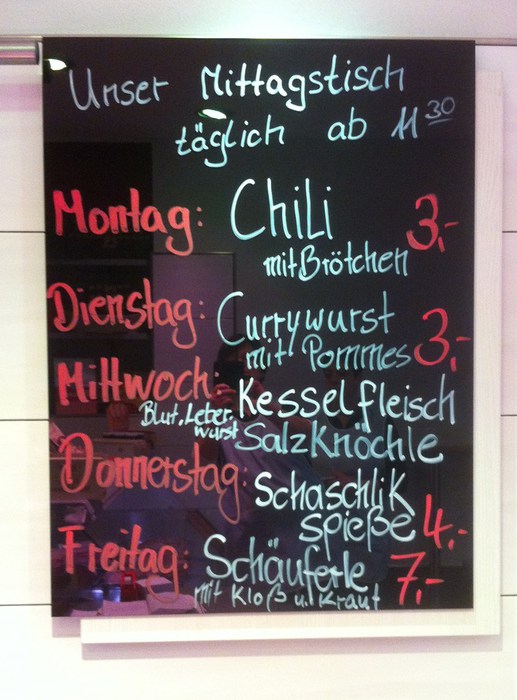 Unser Mittagstisch
täglich ab 11 30
Montag: Chili 3,-
mit Brötchen
Dienstag: Currywurst
mit Pommes 3,-
Mittwoch: Kesselfleisch
Blut, Leber-
wurst Salzknöchle
Donnerstag: Schaschlik
spieße 4,-
Freitag: Schäuferle 7,-
mit Kloß u. Kraut